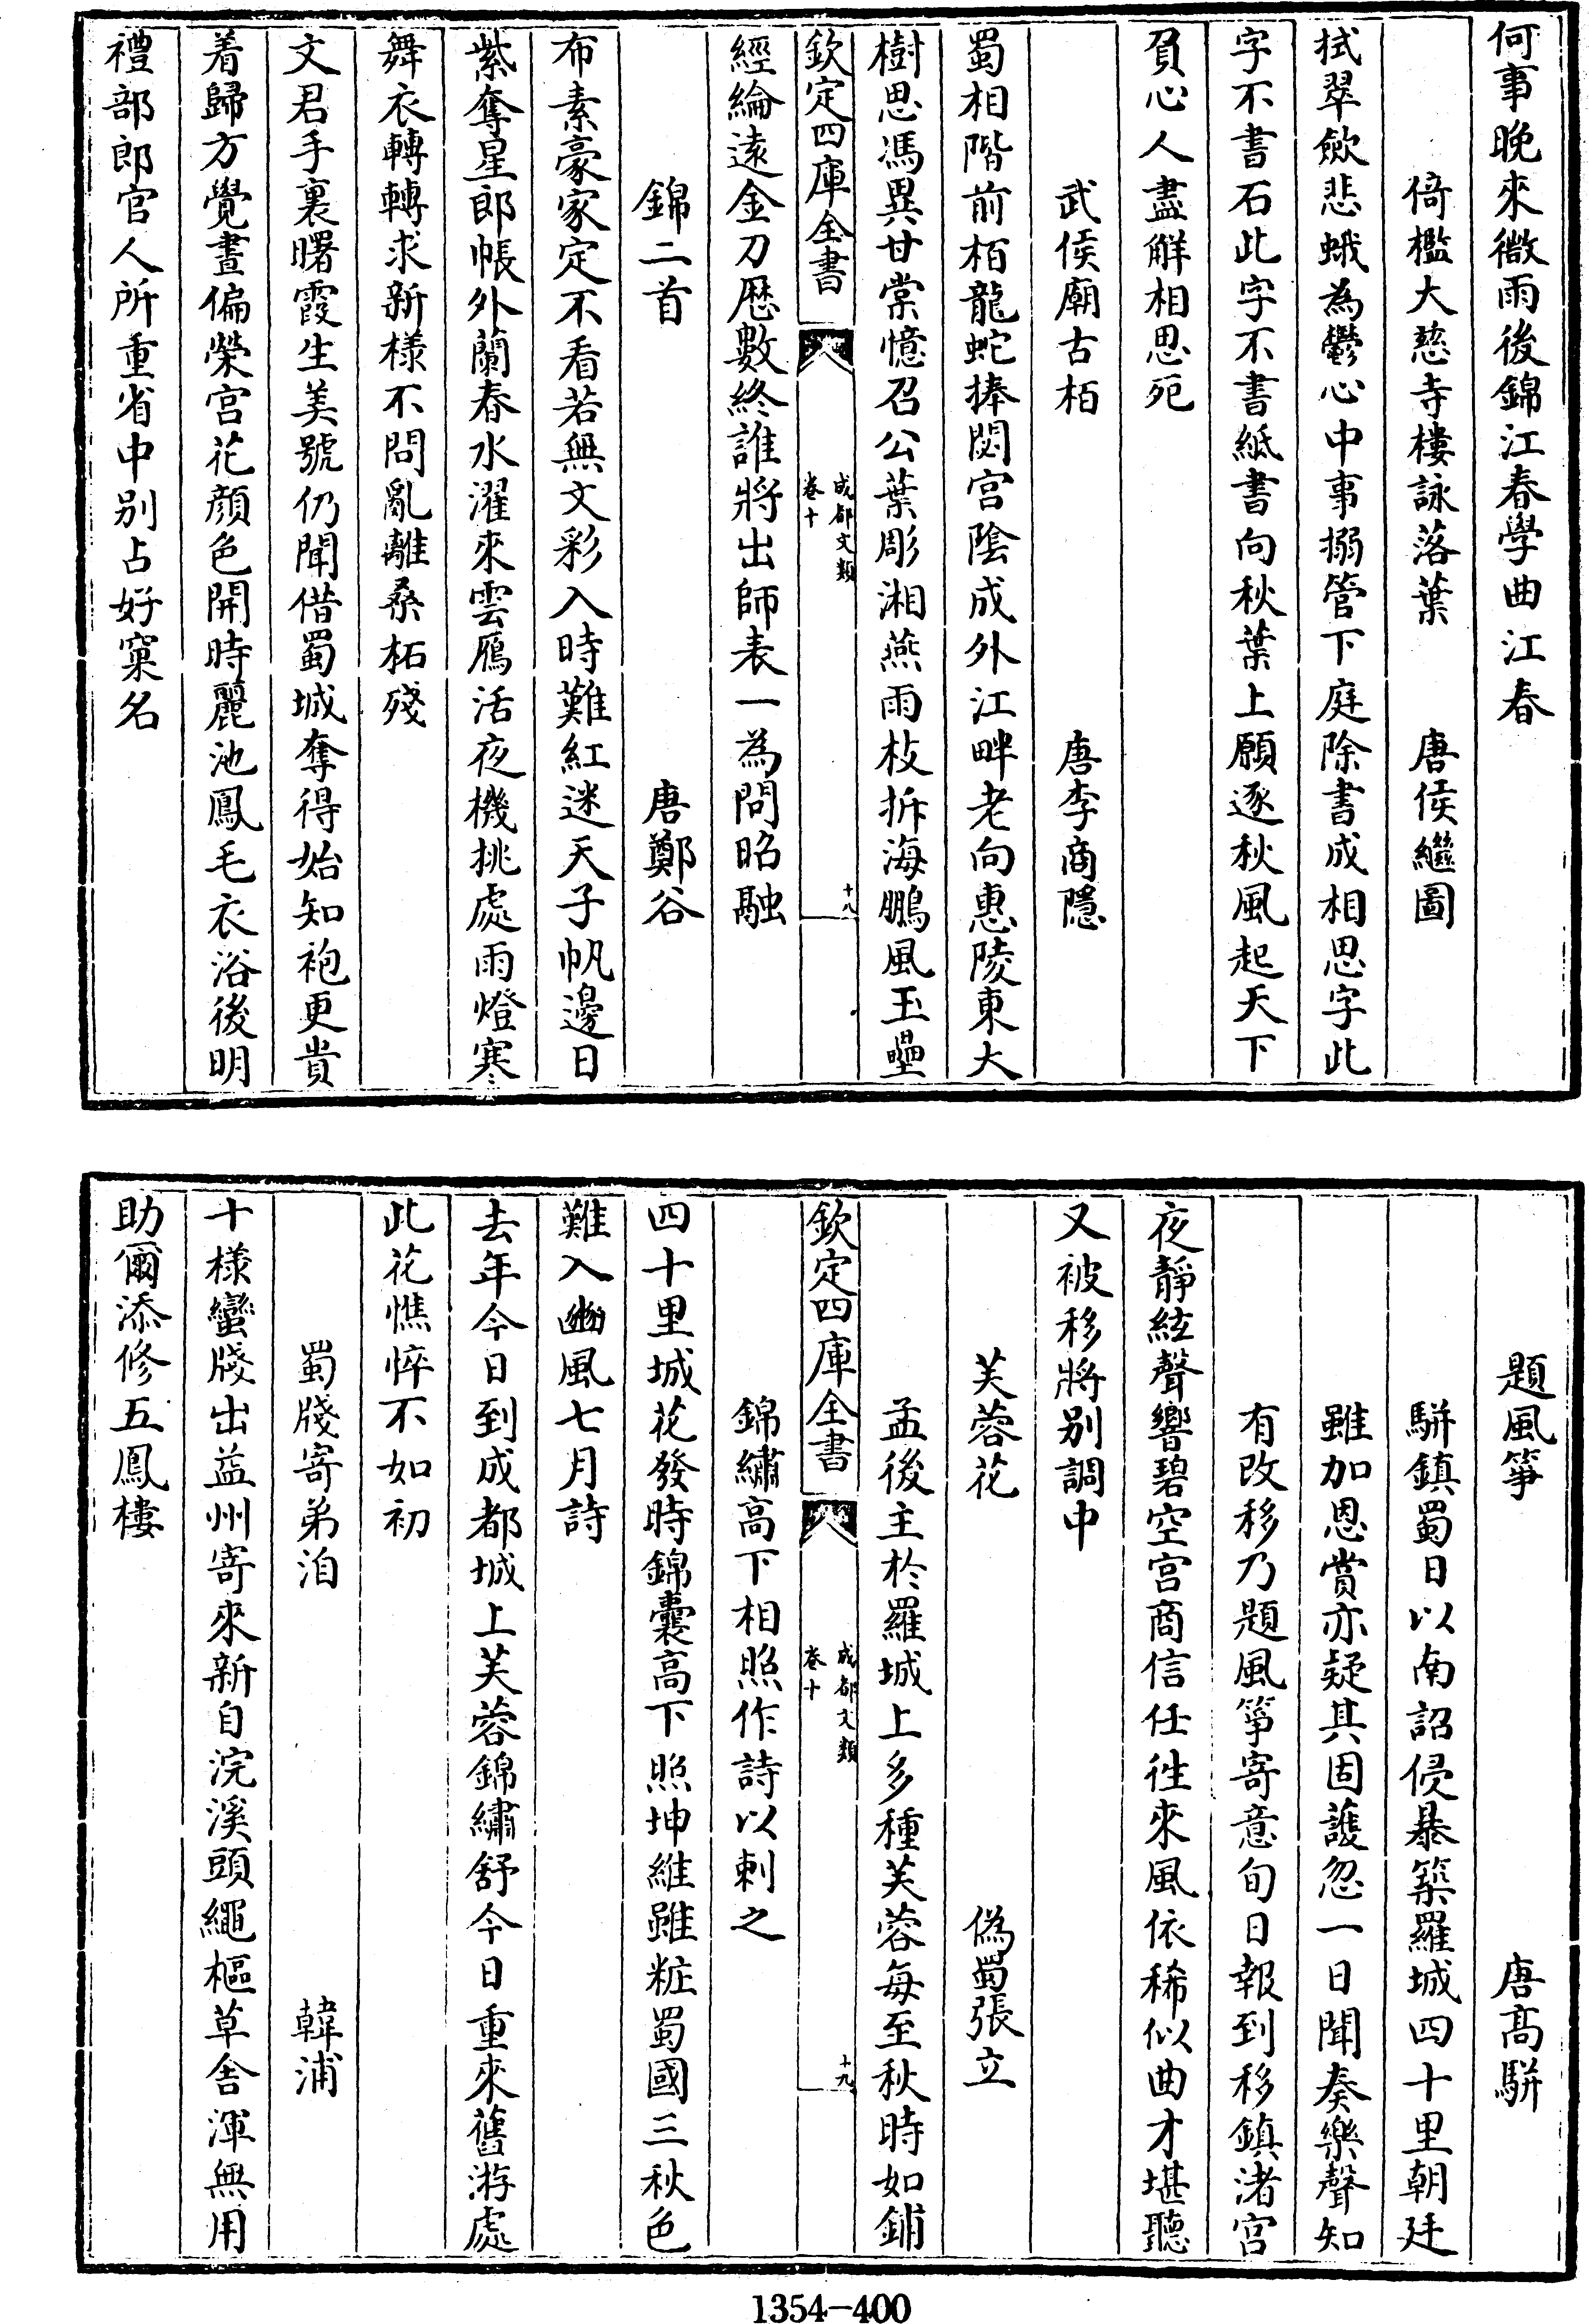 何事晚來微雨後錦江春學曲江春
倚檻大慈寺樓詠落葉　唐侯繼圖
拭翠歛悲蛾為鬱心中事搦管下庭除書成相思字此
字不書石此字不書紙書向秋葉上願逐秋風起天下
負心人盡解相思死
武侯廟古栢　唐李商隱
蜀相階前栢龍蛇捧閟宮陰成外江畔老向惠陵東大
樹思馮異甘棠憶召公葉彫湘燕雨枝拆海鵬風玉壘
欽定四庫全書　成都文類
卷十　十八
經綸遠金刀厯數終誰將出師表一為問昭融
錦二首　唐鄭谷
布素豪家定不看若無文彩入時難紅迷天子帆邊日
紫奪星郎帳外蘭春水濯來雲鴈活夜機挑處雨燈寒
舞衣轉轉求新樣不問亂離桑柘殘
文君手裏曙霞生美號仍聞借蜀城奪得始知袍更貴
着歸方覺晝偏榮宮花顔色開時麗池鳳毛衣浴後明
禮部郎官人所重省中别占好窠名
題風箏　唐髙駢
駢鎮蜀日以南詔侵暴築羅城四十里朝廷
雖加恩賞亦疑其固護忽一日聞奏樂聲知
有改移乃題風箏寄意旬日報到移鎮渚宮
夜靜絃聲響碧空宮商信任往來風依稀似曲才堪聽
又被移將别調中
芙蓉花　偽蜀張立
孟後主於羅城上多種芙蓉每至秋時如鋪
欽定四庫全書　成都文類
卷十　十九
錦繡高下相照作詩以刺之
四十里城花發時錦囊高下照坤維雖粧蜀國三秋色
難入豳風七月詩
去年今日到成都城上芙蓉錦繡舒今日重來舊游處
此花憔悴不如初
蜀牋寄弟洎　韓浦
十樣蠻牋出益州寄來新自浣溪頭繩樞草舍渾無用
助爾添修五鳳樓
1354-400